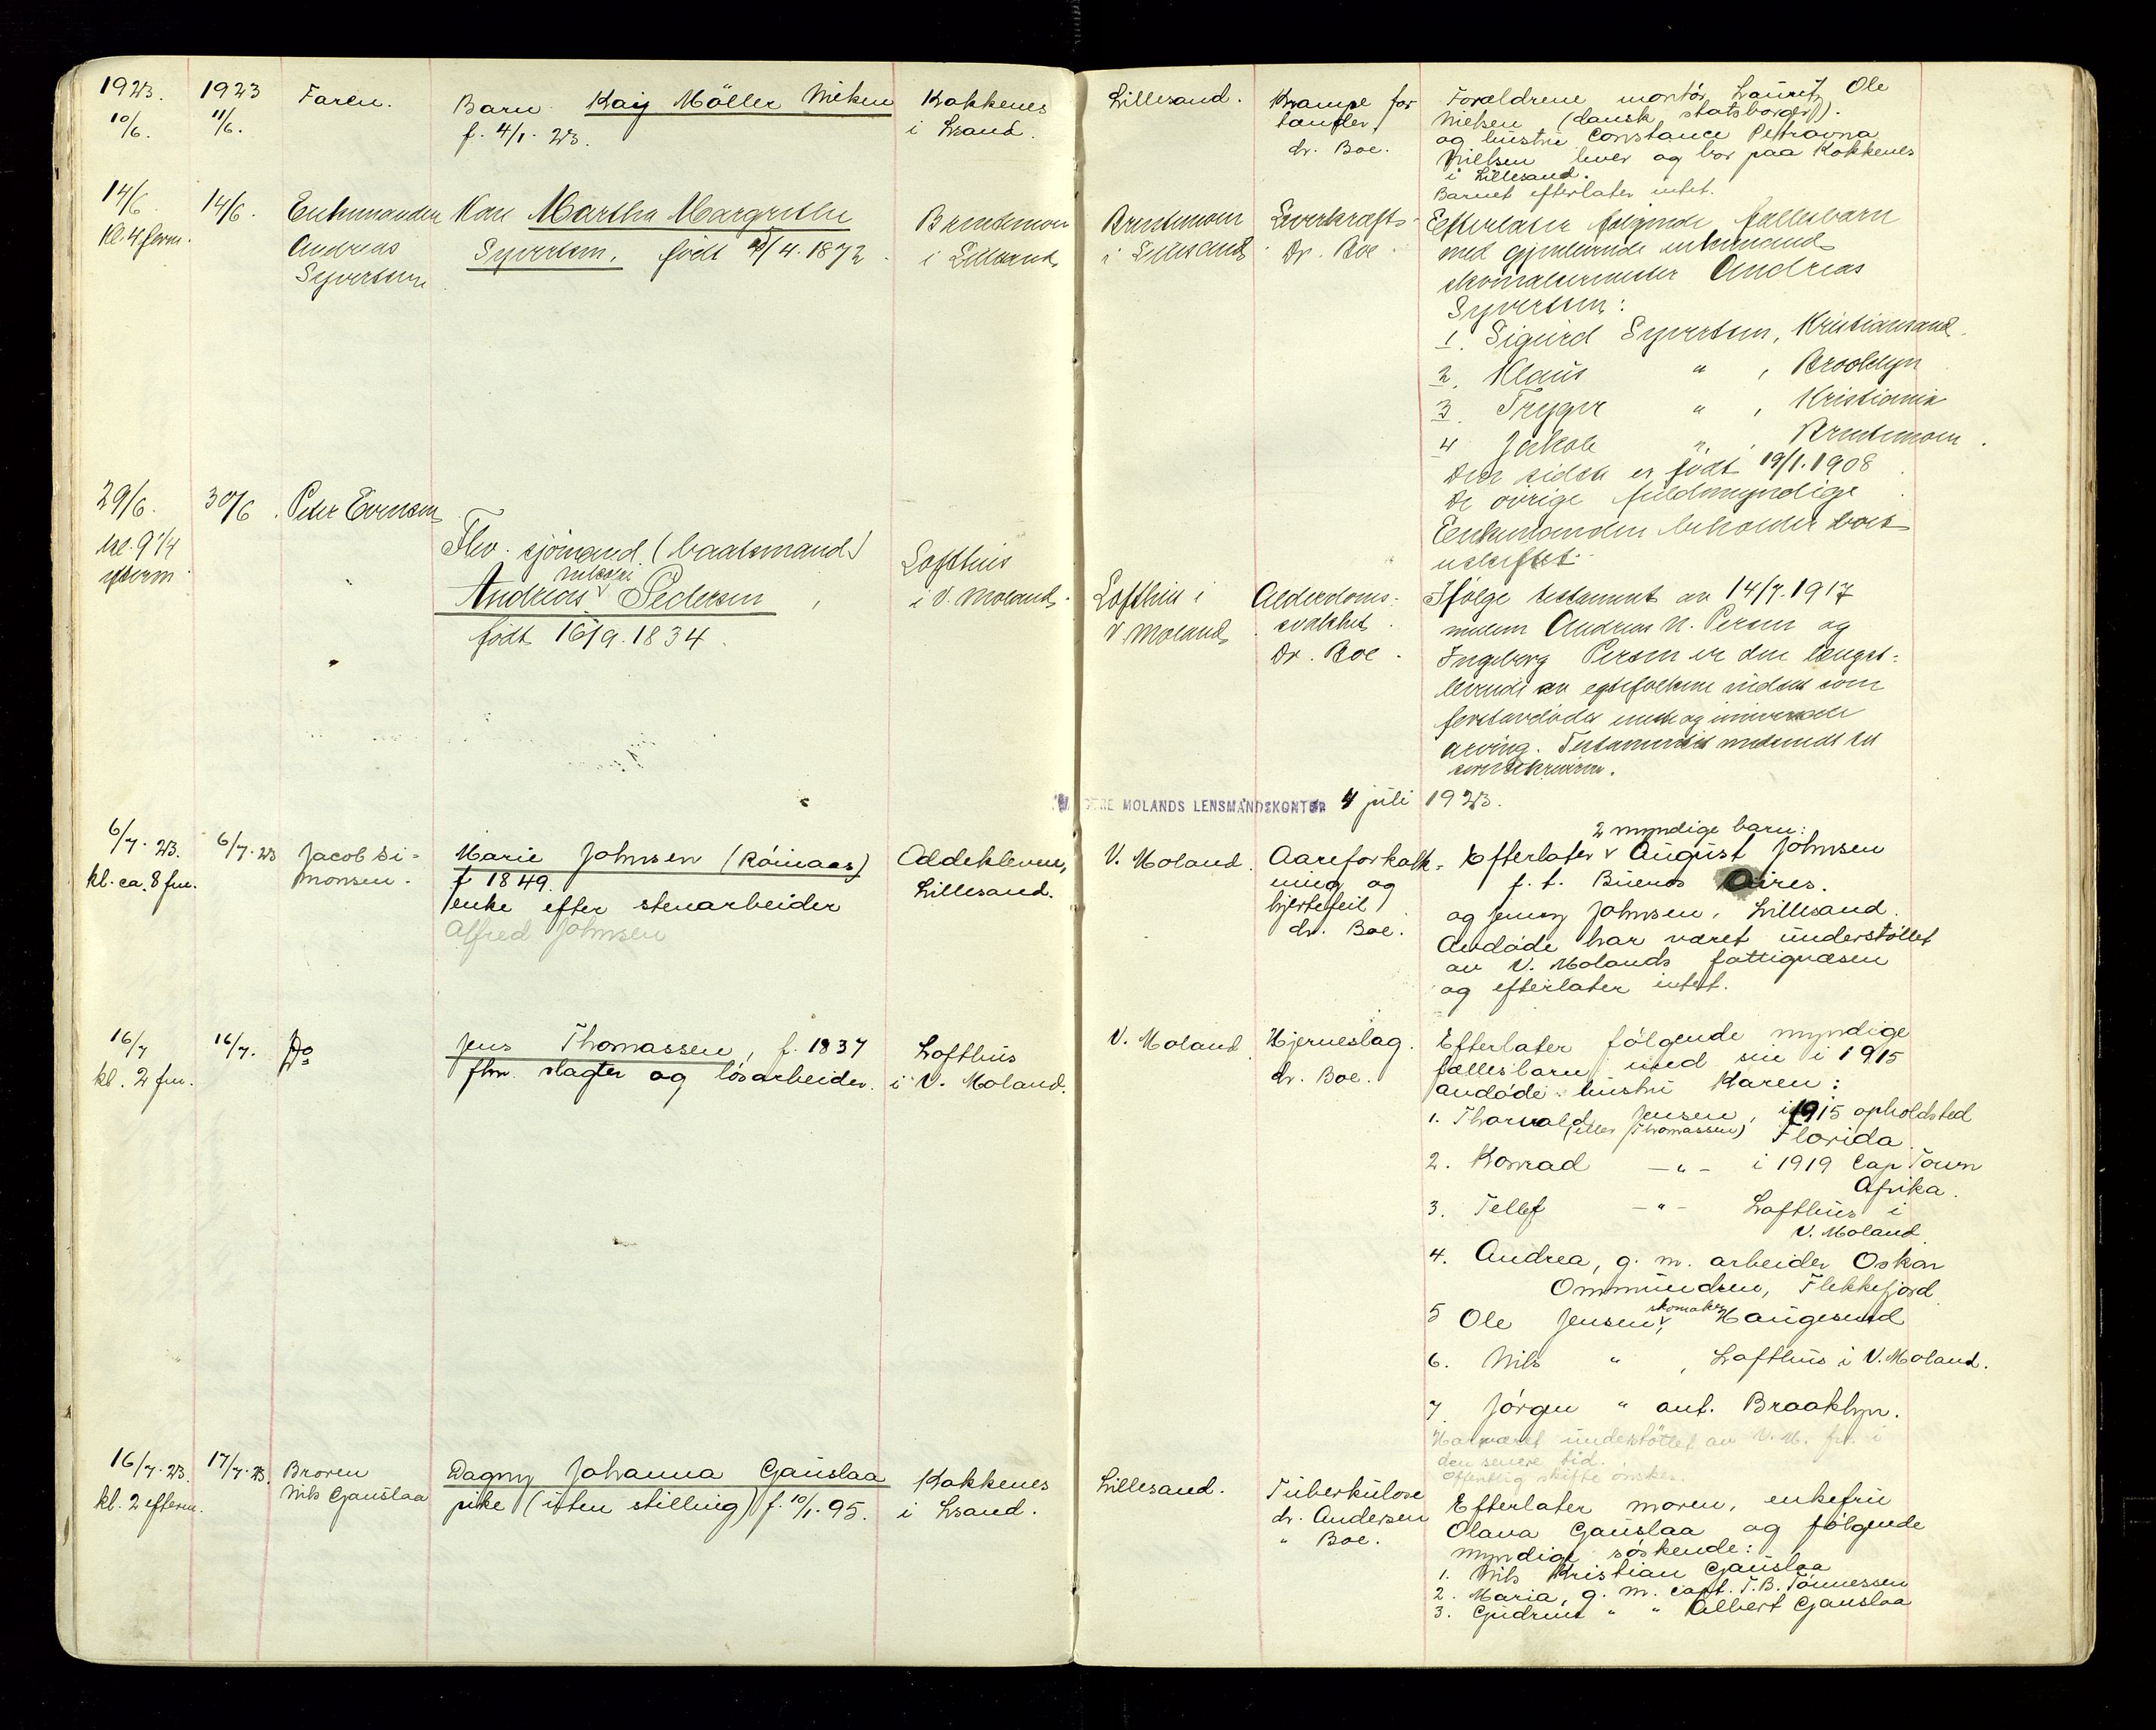 1923. 1923 Faren. Barn Kaij Möller Nielsen Kokkenes Lillesand. Krampe for Forældrene montör Lauritz Ole
10/6. 11/6. f. 4/1. 23. i Lsand. tænder, Nielsen (dansk statsborger).
dr. Boe. og hustru Constance Petravna
Nielsen lever og bor paa Kokkenes
i Lillesand.
Barnet efterlater intet.
14/6 14/6. Enkemanden Kone Martha Margrethe Brentemoen Brentemoen Leverkræft Efterlater følgende fællesbarn
Kl. 4 form. Andreas Syvertsen, født /4. 1872 i Lillesand i Lillesand Dr. Boe med gjenlevende enkemand
Syvertsen skomakermester Andreas
Syvertsen:
1. Sigurd Syvertsen, Kristiansand.
2. Klaus " , Brooklyn
3. Trygve " , Kristiania
4 Jakob " , Brentemoen.
Den sidste er født 19/1. 1908
De øvrige fuldmyndige
Enkemanden beholder boet
uskiftet.
29/6. 30/6. Peter Evensen Fhv. sjömand (baatsmand) Lofthus Lofthus i Alderdoms- Ifölge testament av 14/7. 1917
kl. 9 1/4 Nikolai i V. Moland. V. Moland svakhet mellem Andreas N. Persen og
efterm Andreas Pedersen, Dr. Boe. Ingeborg Persen er den længst-
født 16/9. 1834. levende av egtefolkene indsat som
førstavdødes eneste og universale
arving. Testamentet indsendt til
sorenskriveren.
MOLANDS LENSMANDSKONTOR 4 juli 1923.
6/7. 23. 6/7. 23 Jacob Si- Marie Johnsen (Röinaas) Oddeklevene, V. Moland. Aareforkalk- 2 myndige barn:
kl. ca. 8 fm. monsen. f 1849. Lillesand. ning og Efterlater August Johnsen
enke efter stenarbeider hjertefeil f. t. Buenos Aires.
Alfred Johnsen dr. Boe. og Jenny Johnsen, Lillesand.
Avdöde har været understöttet
av V. Molands fattigvæsen
og efterlater intet.
16/7 16/7. Do Jens Thomassen, f. 1837 Lofthus V. Moland Hjerneslag. Efterlater følgende myndige
kl. 2 fm. fhv. slagter og lösarbeider. i V. Moland. dr. Boe. fællesbarn med sin i 1915
avdöde hustru Karen:
1. Thorvald Jensen, i 1915 opholdsted
(eller Thomassen) Florida
2. Konrad —"— i 1919 Cap Town
Afrika.
3. Tellef —"— Lofthus i
V. Moland
4. Andrea, g. m. arbeider Oskar
Ommundsen, Flekkefjord
5 Ole Jensen, skomaker Haugesund
6. Nils " , Lofthus i V. Moland.
7. Jörgen " ant. Brooklyn.
Har været understöttet av V. M. fv. i
den senere tid.
Offentlig skifte ønskes.
16/7. 23. 17/7. 23. Broren Dagny Johanna Gauslaa Kokkenes Lillesand. Tuberkulose Efterlater moren, enkefru
kl. 2 efterm. Nils Gauslaa pike (uten stilling) f. 10/1. 95. i Lsand. dr. Andersen Olava Gauslaa og følgende
" Boe. myndige söskende:
1. Nils Kristian Gauslaa
2. Maria, g. m. capt. T. B. Tönnessen
3. Gudrun " " Albert Gauslaa